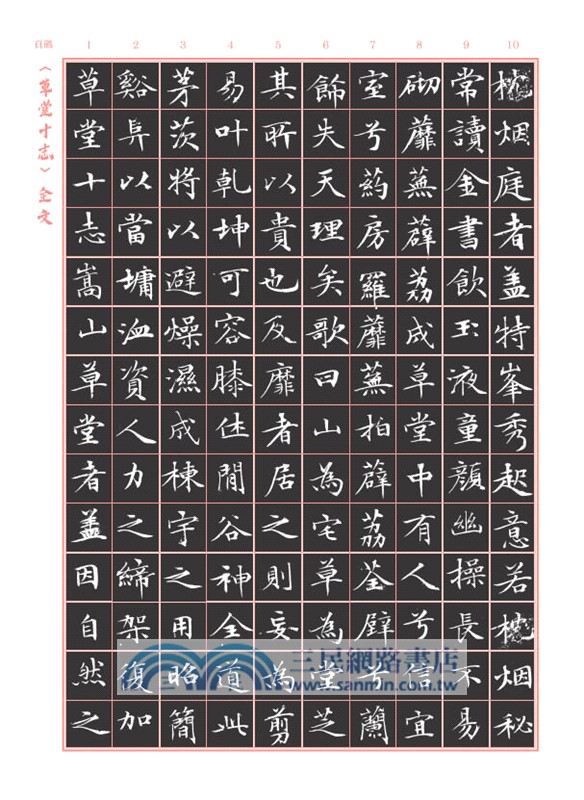 1 2 3 4 5 6 7 8 9 10
〈草堂十志〉全文
草堂十志嵩山草堂者盖因自然之
谿阜以當墉洫資人力之締架復加
茅茨將以避燥濕成棟宇之用昭簡
易叶乾坤可容膝休閒谷神全道此
其所以貴也及靡者居之則妄為剪
飾失天理矣歌曰山為宅草為堂芝
室兮葯房羅蘼蕪拍薜荔荃壁兮蘭
砌蘼蕪薜荔成草堂中有人兮信宜
常讀金書飲玉液童顏幽操長不易
枕烟庭者盖特峯秀起意若枕烟秘
三民網路書店
www.sanmin.com.tw